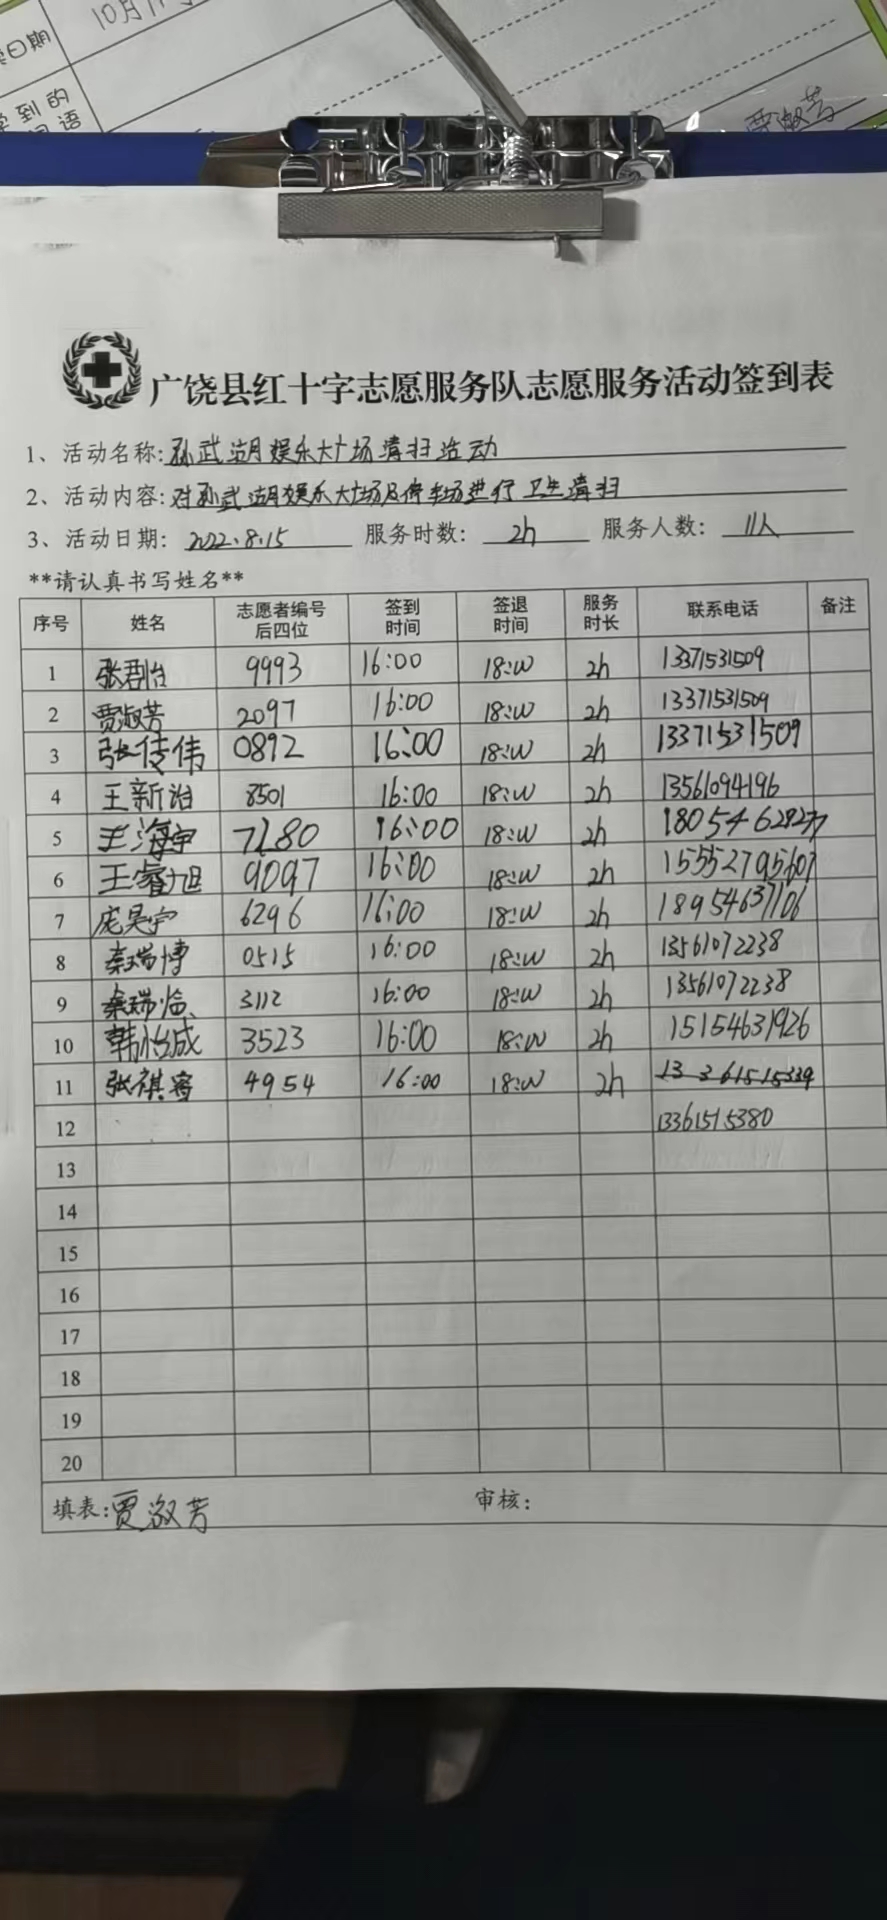 10月
到的
语
贾淑芳
广饶县红十字志愿服务队志愿服务活动签到表
1、活动名称:孙武湖娱乐大广场清扫活动
2、活动内容:对孙武湖娱乐大广场及停车场进行卫生清扫
3、活动日期: 2022.8.15 服务时数: 2h 服务人数: 11人
**请认真书写姓名**
序号 姓名 志愿者编号后四位 签到时间 签退时间 服务时长 联系电话 备注
1 张君怡 9993 16:00 18:00 2h 13371531509
2 贾淑芳 2097 16:00 18:00 2h 13371531509
3 张传伟 0892 16:00 18:00 2h 13371531509
4 王新治 8501 16:00 18:00 2h 13561094196
5 王海宇 7280 16:00 18:00 2h
6 王睿旭 9097 16:00 18:00 2h 15552795607
7 庞昊宇 6296 16:00 18:00 2h 18954637106
8 秦瑞博 0515 16:00 18:00 2h 13561072238
9 秦瑞 3112 16:00 18:00 2h 13561072238
10 韩怡成 3523 16:00 18:00 2h 15154631926
11 张祺 4954 16:00 18:00 2h
12 13361515380
13
14
15
16
17
18
19
20
填表:贾淑芳 审核: